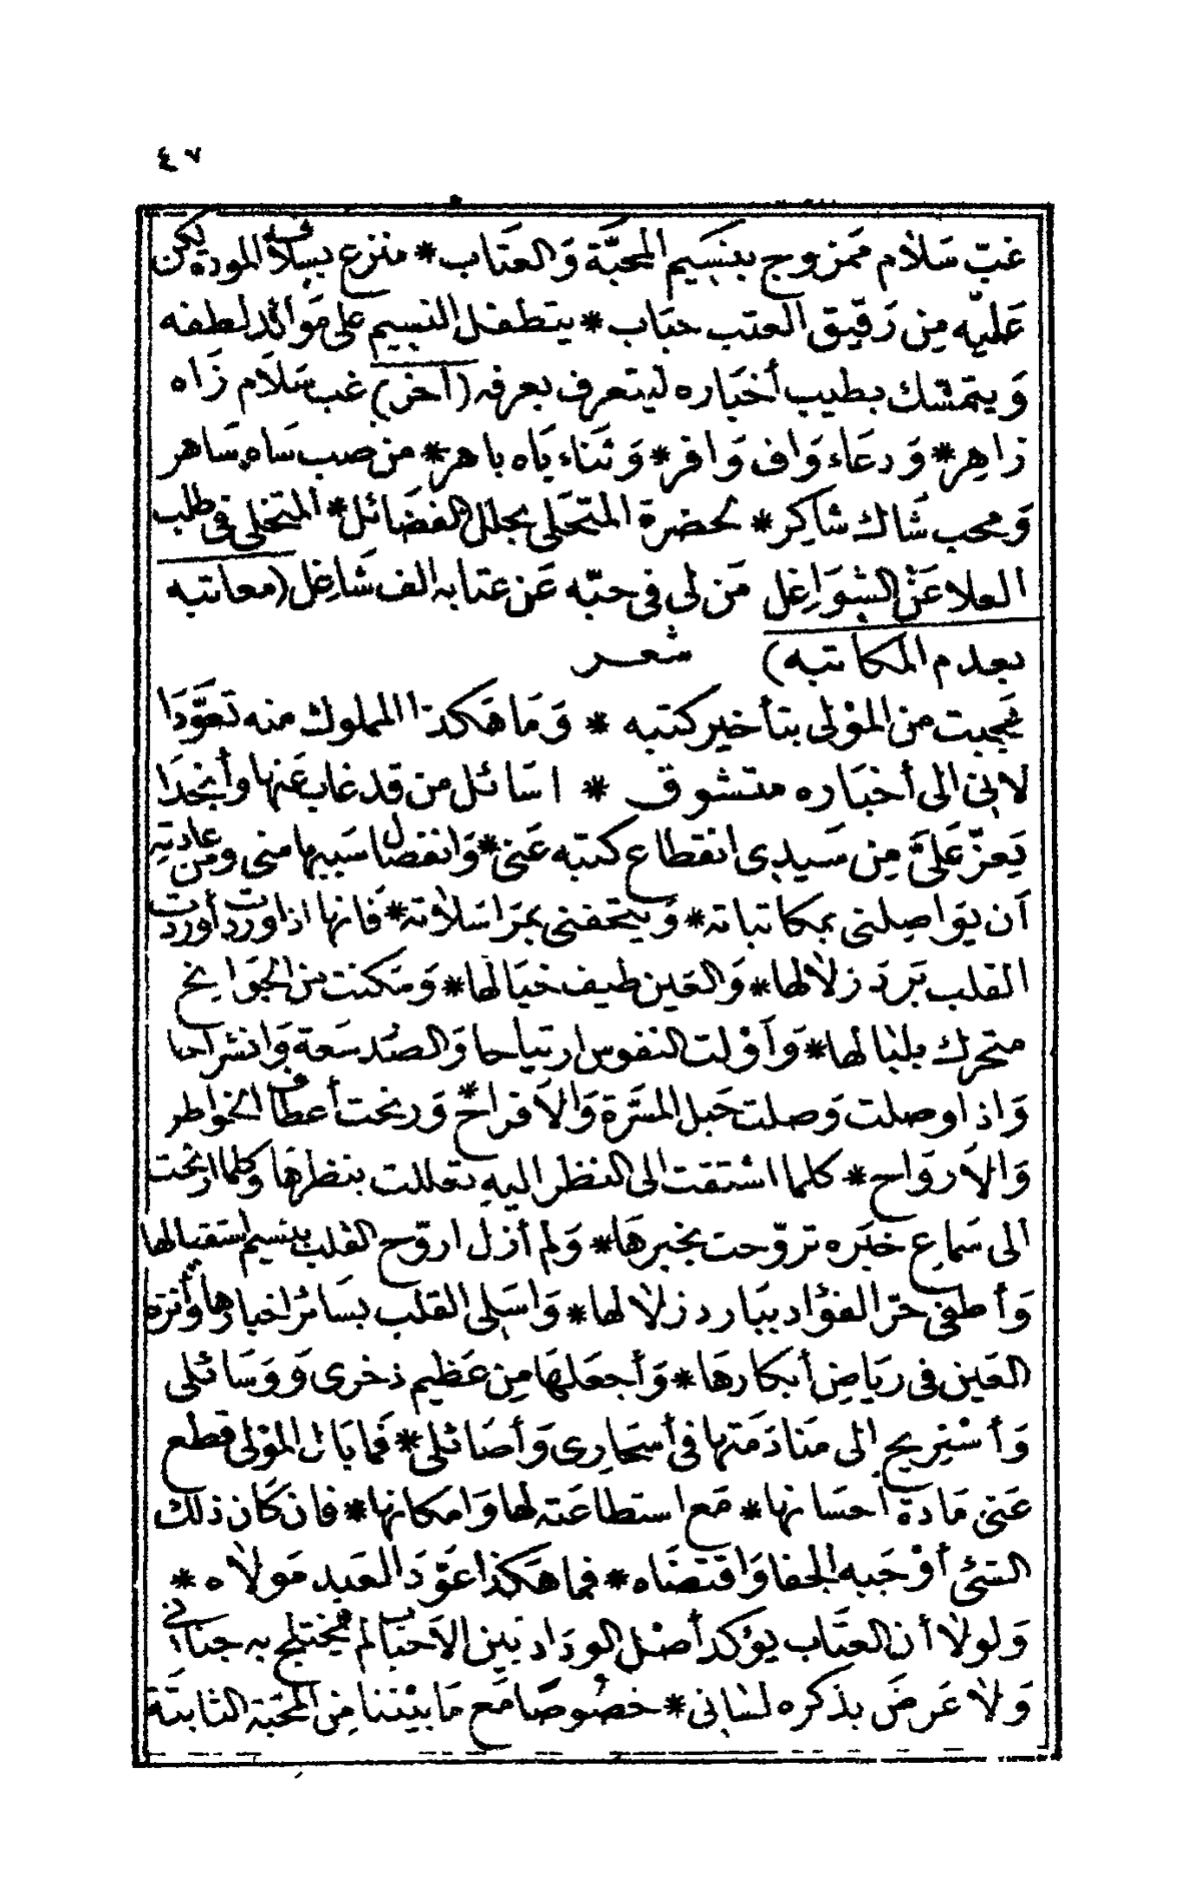 ٤٧
غبّ سَلام ممَزوج ببنَسَيم المحَبّة وَالعتَاب * منزع بسلاف المودة يكن
عَليّه مِن رَقيق العتب حبَاب * يتطفل النسيم على موَائد لطفه
وَيتمسّك بطيب أخبَاره ليتعرف بعرفه (آخر) غب سَلَام زَاه
زاهِر * وَدعَاء وَاف وَافر * وَثنَاء بَاه باهر * من صب سَاه سَاهر
وَمحب شَاك شاكِر * لحضرة المتحَلى بحلل الفضَائل * المتخلى فى طلب
العلا عَن الشوَاغِل مَن لى فى حبّه عَن عتابه الف شَاغِل (معاتبه
بعدم المكاتبه) شعر
عَجبت من الموْلى بتأخير كتبه * وَمَا هَكذا المملوك منه تَعوَّدَا
لانِى الى أخبَاره متشوق * اسَائل من قد غاب عَنها وأنجدَا
يَعزّ عَلَىَّ مِن سَيدِى انقطاع كتبه عَنى * وَانفصَال سَببها منى ومن عادته
أن يوَاصِلنى بمكاتباته * وَيتحفنى بمرَاسَلاته * فَانها اذا وردت أوردت
القلب بَردَ زلالها * وَالعَين طيف خيَالها * وَمَكنت من الجوَانح
متحرك بلبَالها * وَأوْلت النفوس ارتيَاحا وَالصّدر سَعة وَانشرَاحا
وَاذا وصلت وَصلت حَبل المسَرّة وَالأفراح * وَرنحت أعطاف الخواطر
وَالأروَاح * كلما اشتقت الى النظر اليهِ تعللت بنظرهَا وكلما ارتحت
الى سَماع خبَره تروّحت بخبرهَا * وَلم أزل اروّح القلب بنسيم استقبالها
وَأطفى حرّ الفؤاد ببَارد زلالها * وَاسَلى القلب بسَائر اخبارها وأنزه
العَين فى ريَاض أبكارهَا * وَأجعَلهَا مِن عَظيم ذخرى وَوَسَائلى
وَأسْتريح الى منَادَمَتها فى أسحَارى وَأصَائلى * فمَا بَال الموْلى قطع
عَنى مَادة احسَانها * مَع استطاعَته لها وَامكانها * فان كَان ذلك
الشئ أوْجَبه الجفا وَاقتضَاه * فما هَكذا عَوّدَ العَبد مَولاه *
وَلولا أن العتَاب يؤكد أصْل الودَاد بَين الأحبَاب لم يختلج به جنَانى
وَلا عَرضَ بذكره لسَانى * خصُوصًا مَع مَا بيْننا مِن المحَبة الثابتَة